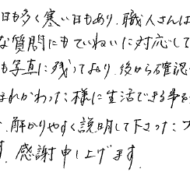 日も多く寒い日もあり、職人さんは
な質問にもていねいに対応して
も写真に残っており、後から確認
はれかわった様に生活できる事を
、解かりやすく説明して下さった
す。感謝申し上げます。